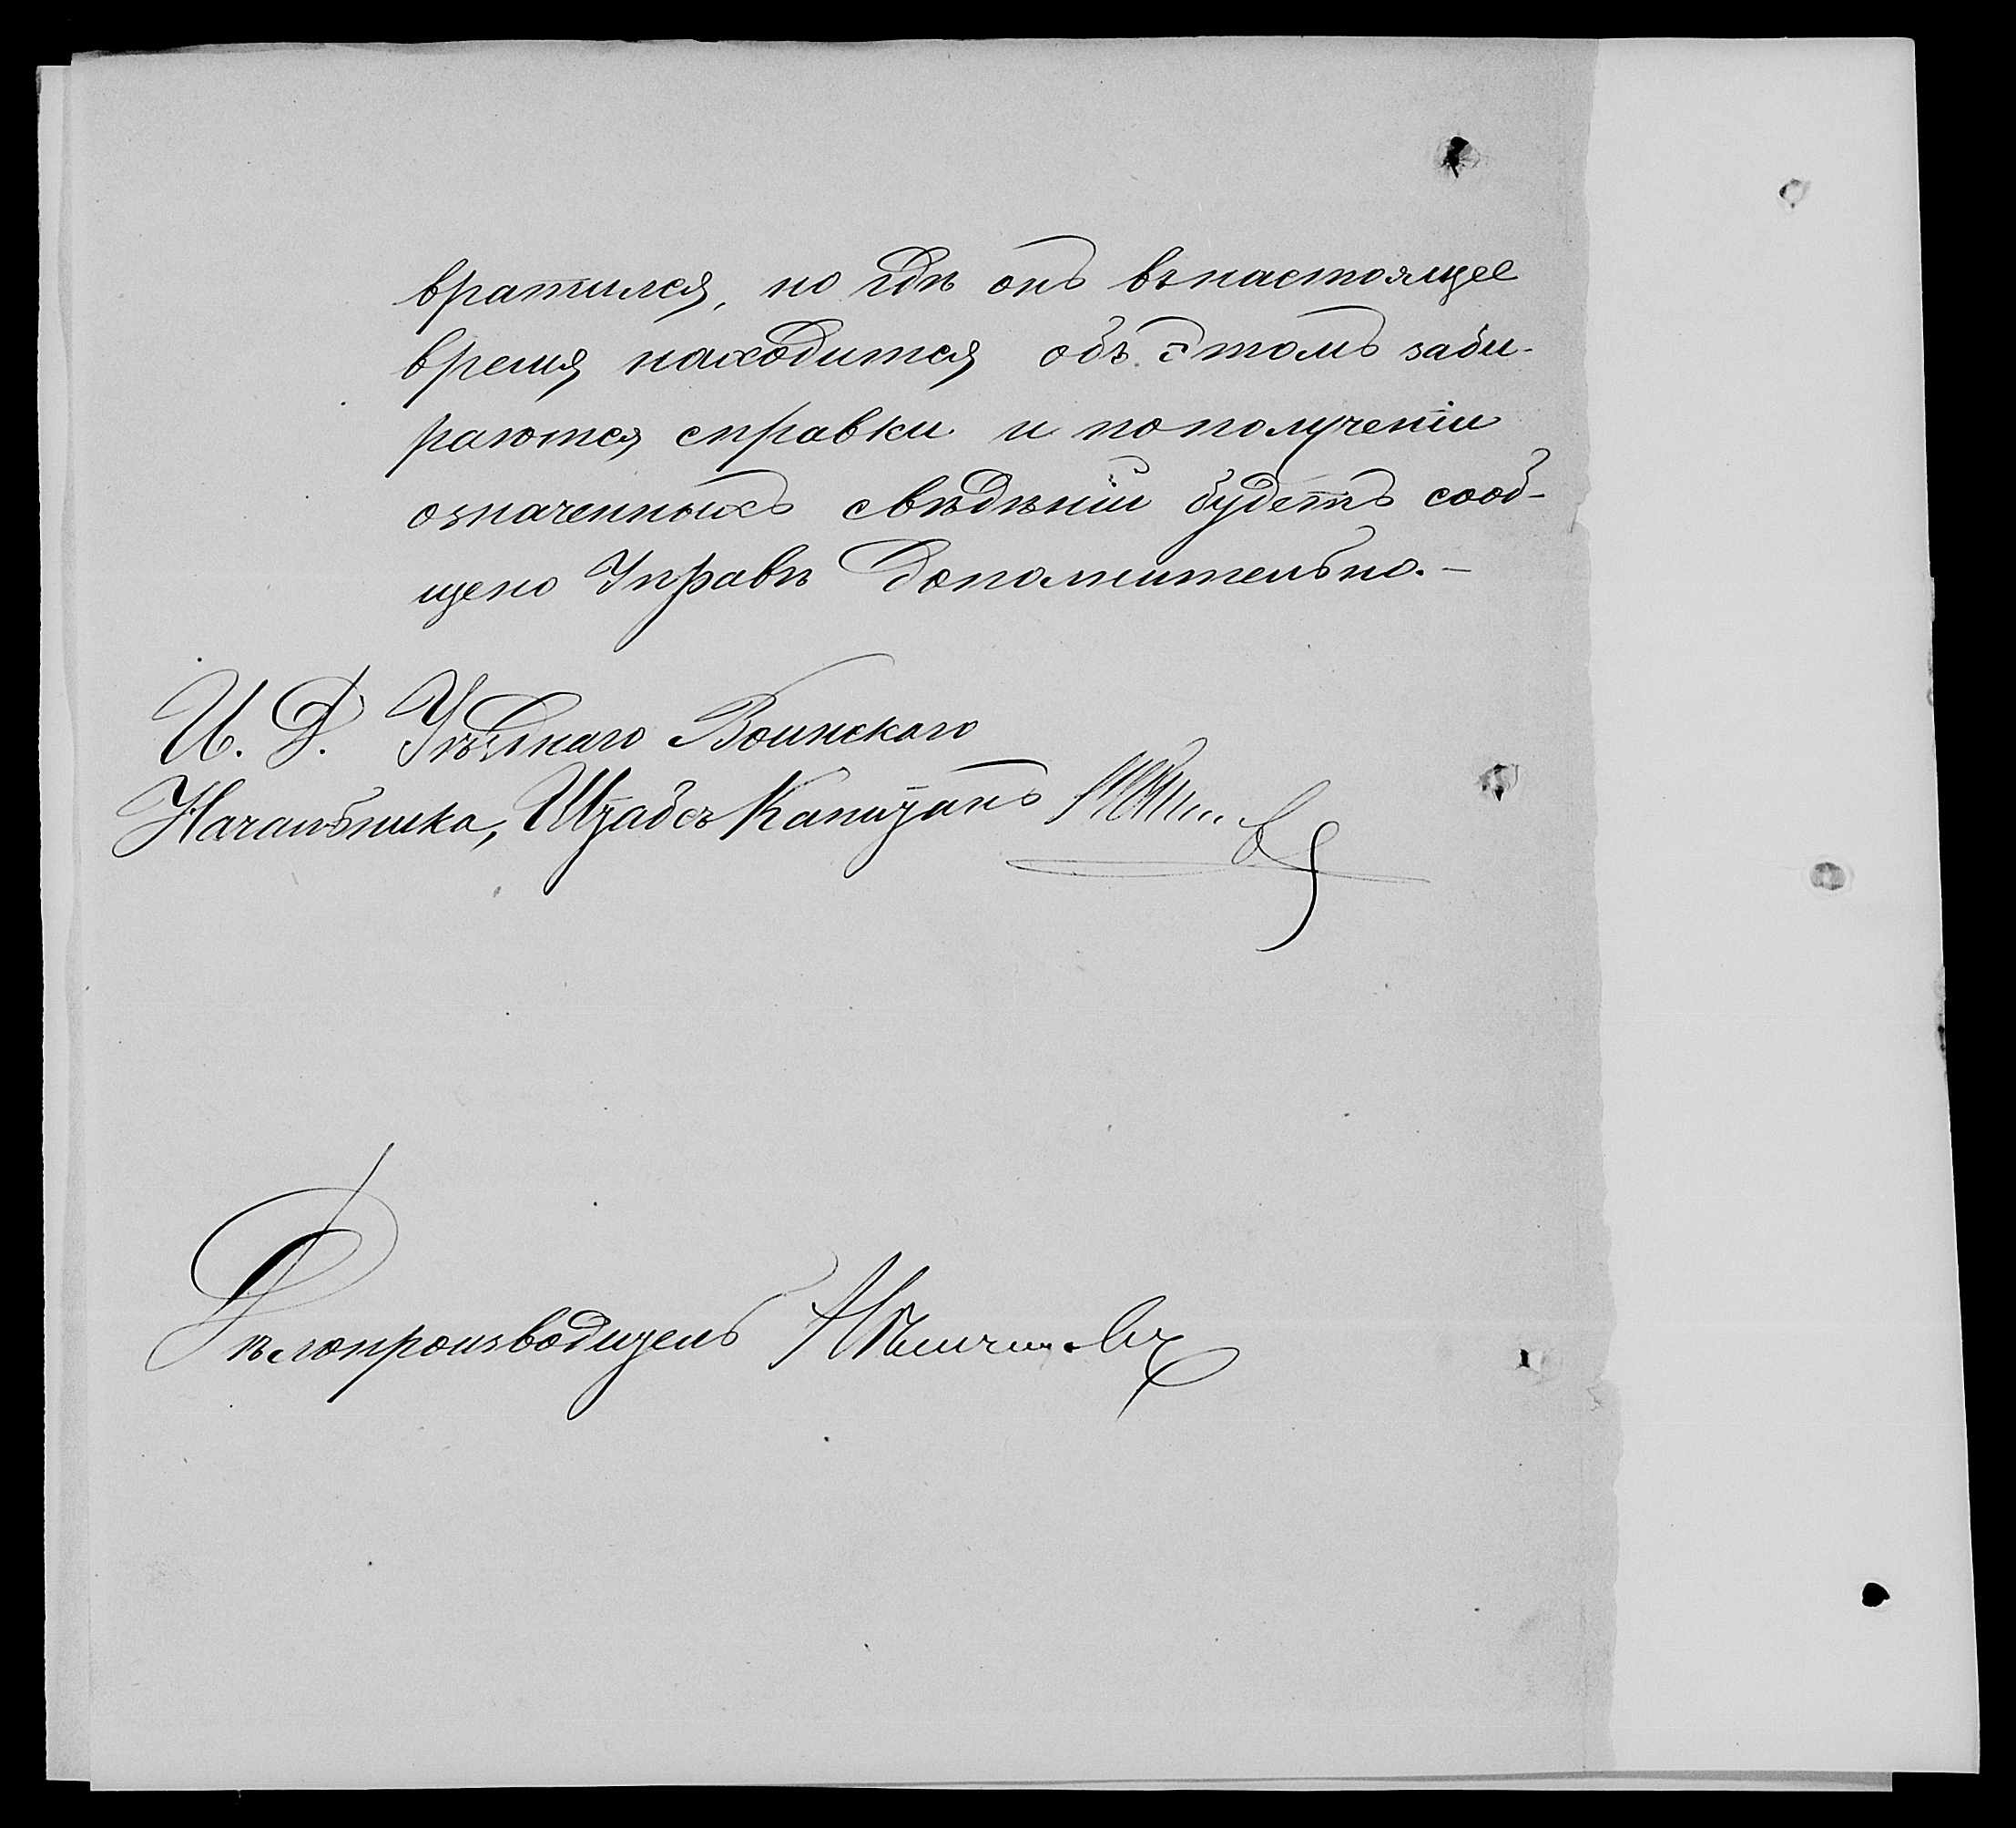 вратился, но гдѣ онъ въ настоящее
время находится объ этомъ заби-
раются справки и по полученіи
означенныхъ свѣдѣній будетъ сооб-
щено Управѣ дополнительно.-
И. Д. Уѣзднаго Воинскаго
Начальника, Штабсъ Капитанъ
Дѣлопроизводитель